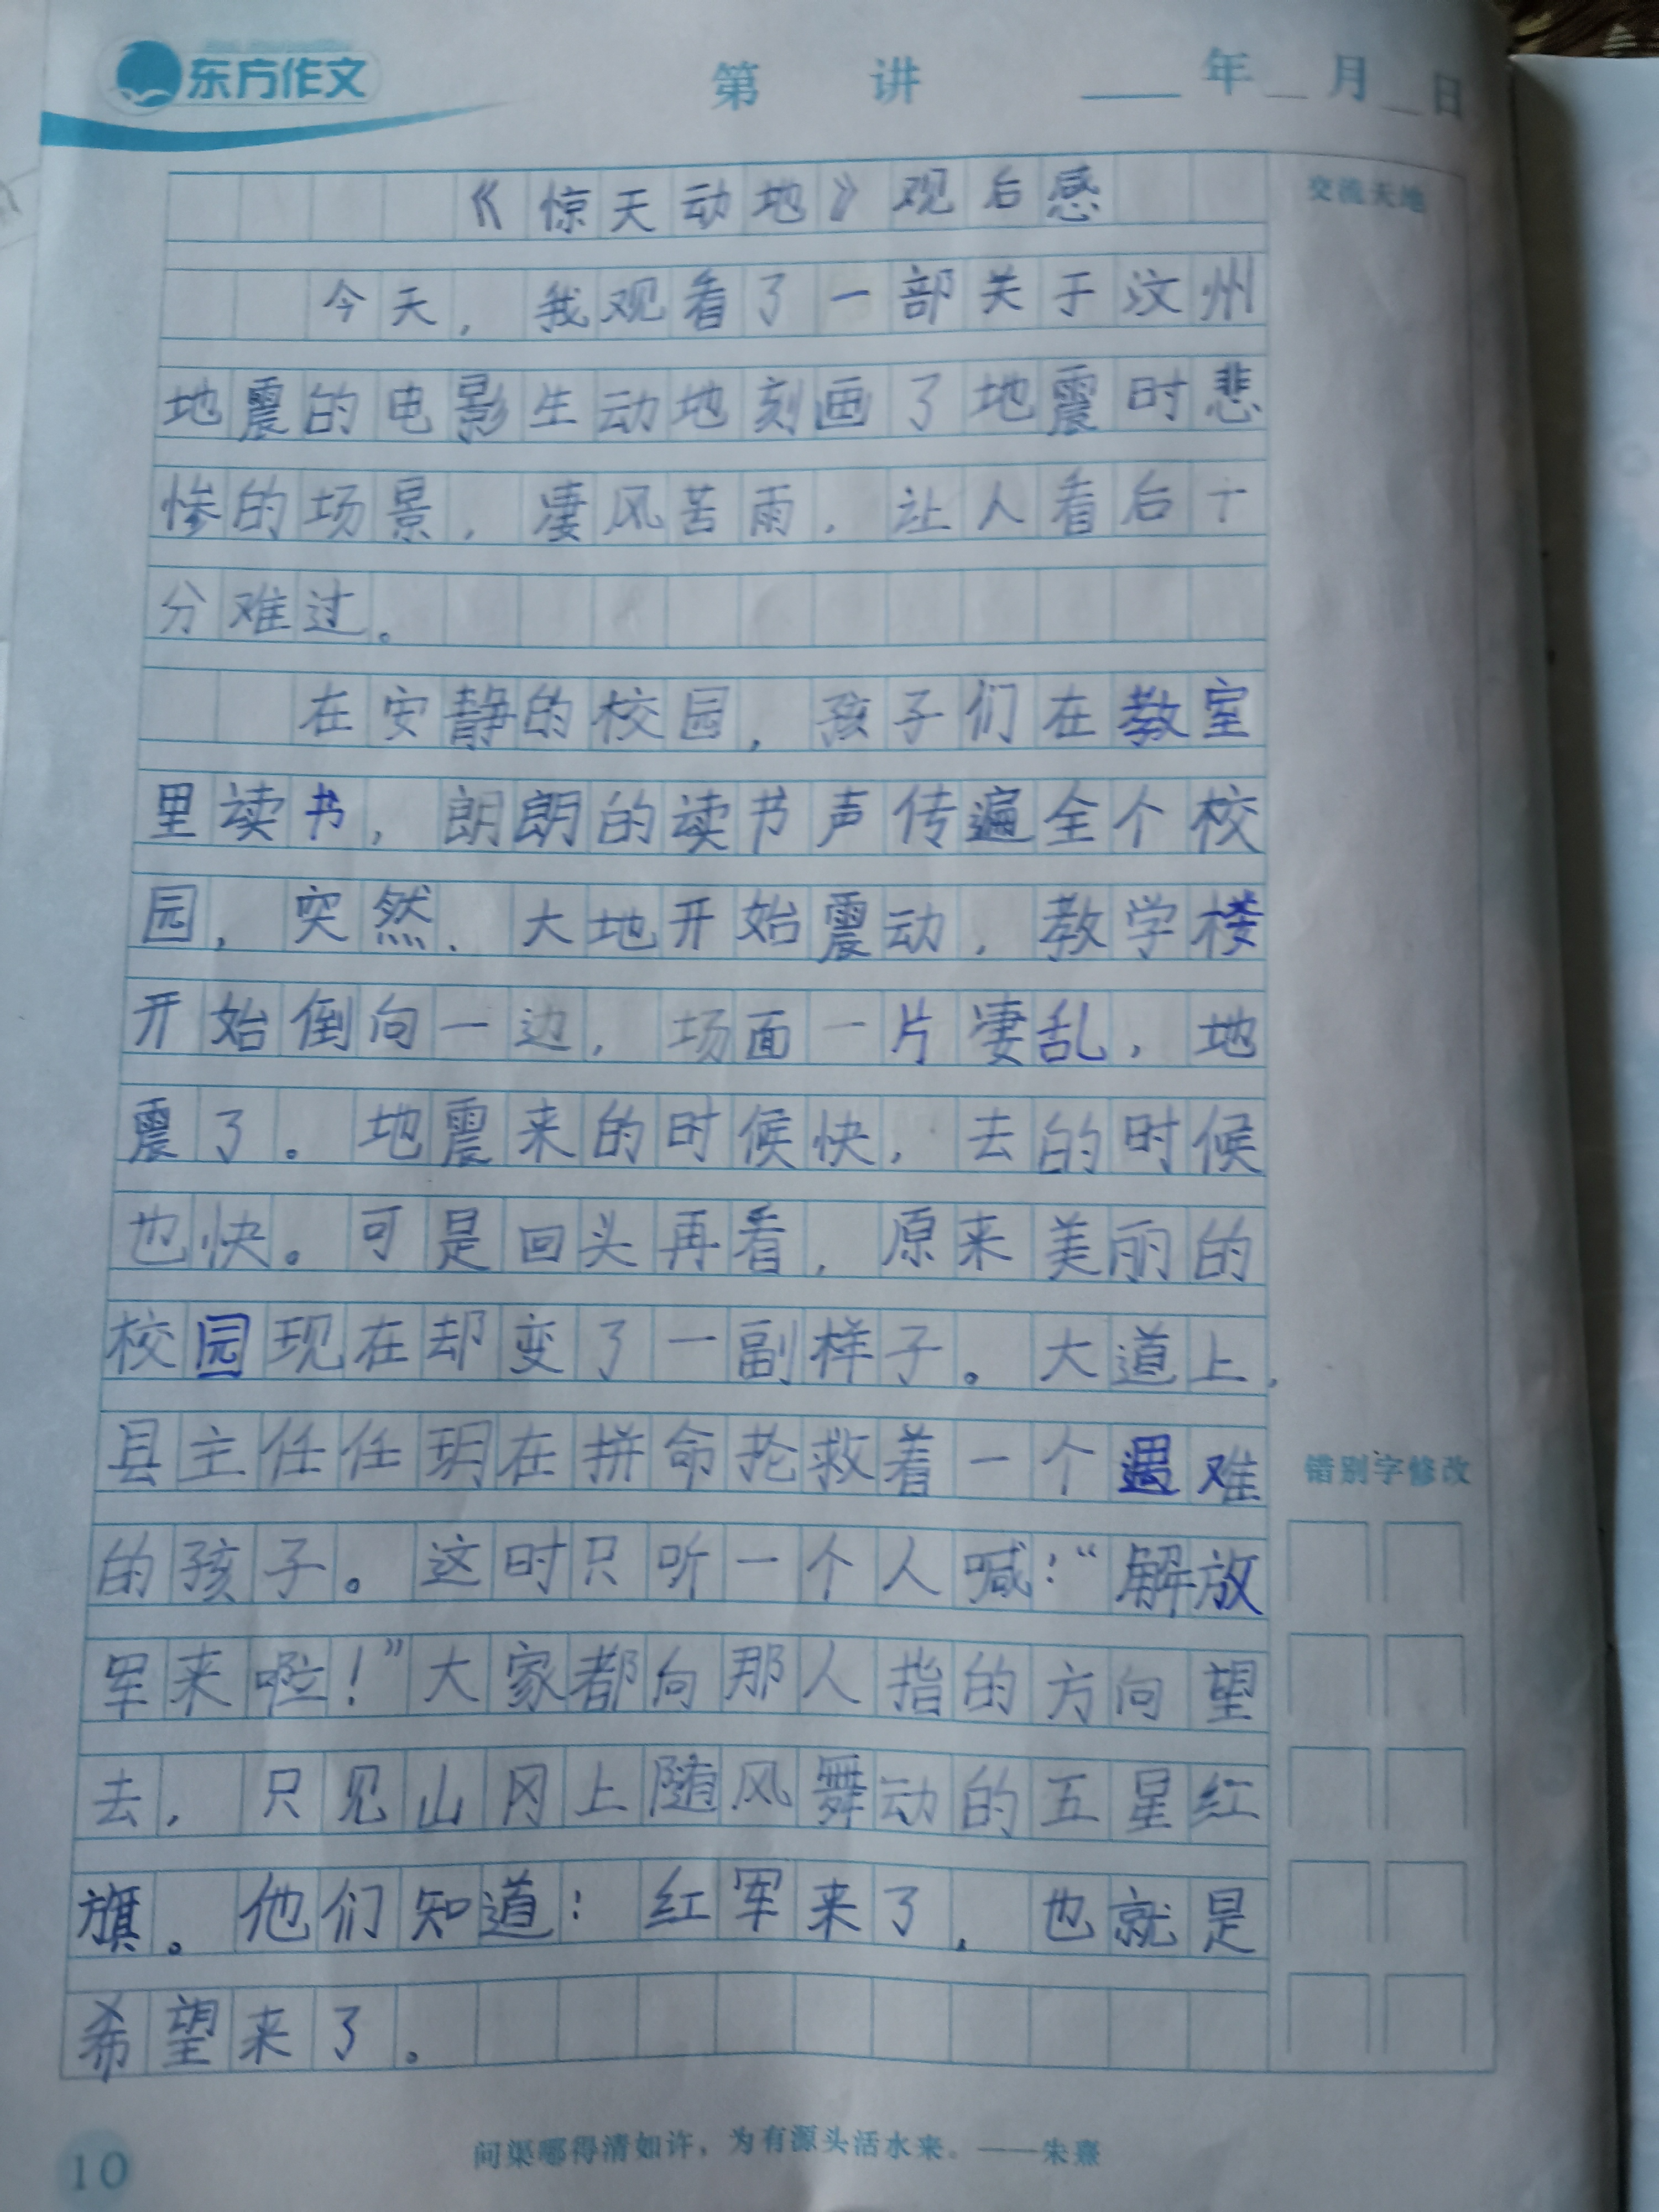 东方作文
第 讲 年 月 日
《惊天动地》观后感
交流天地
今天，我观看了一部关于汶州
地震的电影生动地刻画了地震时悲
惨的场景，凄风苦雨，让人看后十
分难过。
在安静的校园，孩子们在教室
里读书，朗朗的读书声传遍全个校
园，突然，大地开始震动，教学楼
开始倒向一边，场面一片凄乱，地
震了。地震来的时候快，去的时候
也快。可是回头再看，原来美丽的
校园现在却变了一副样子。大道上，
县主任任玥在拼命抢救着一个遇难
错别字修改
的孩子。这时只听一个人喊：“解放
军来啦！”大家都向那人指的方向望
去，只见山冈上随风舞动的五星红
旗。他们知道：红军来了，也就是
希望来了。
10
问渠哪得清如许，为有源头活水来。——朱熹